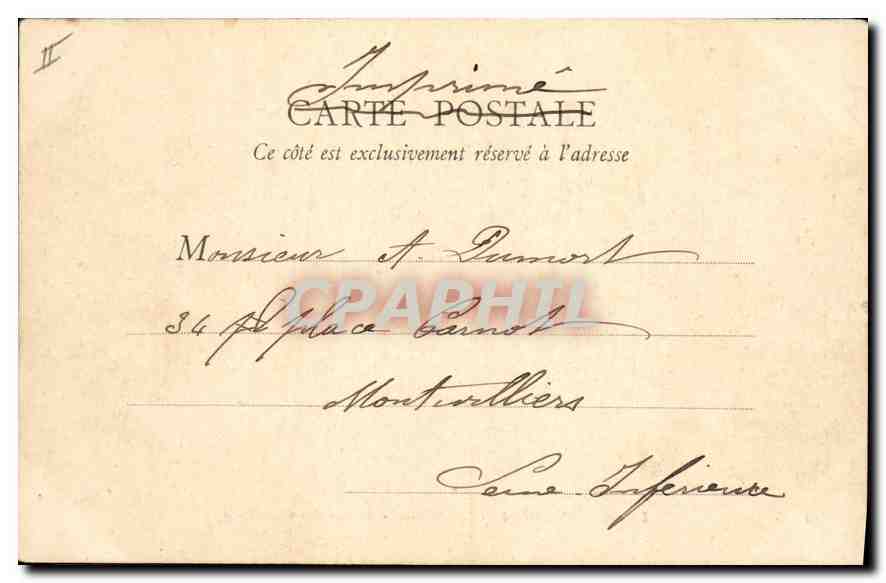 II
Imprimé
CARTE POSTALE
Ce côté est exclusivement réservé à l'adresse
Monsieur A. Dumort
CPAPHIL
34 place Carnot
Montivilliers
Seine-Inférieure